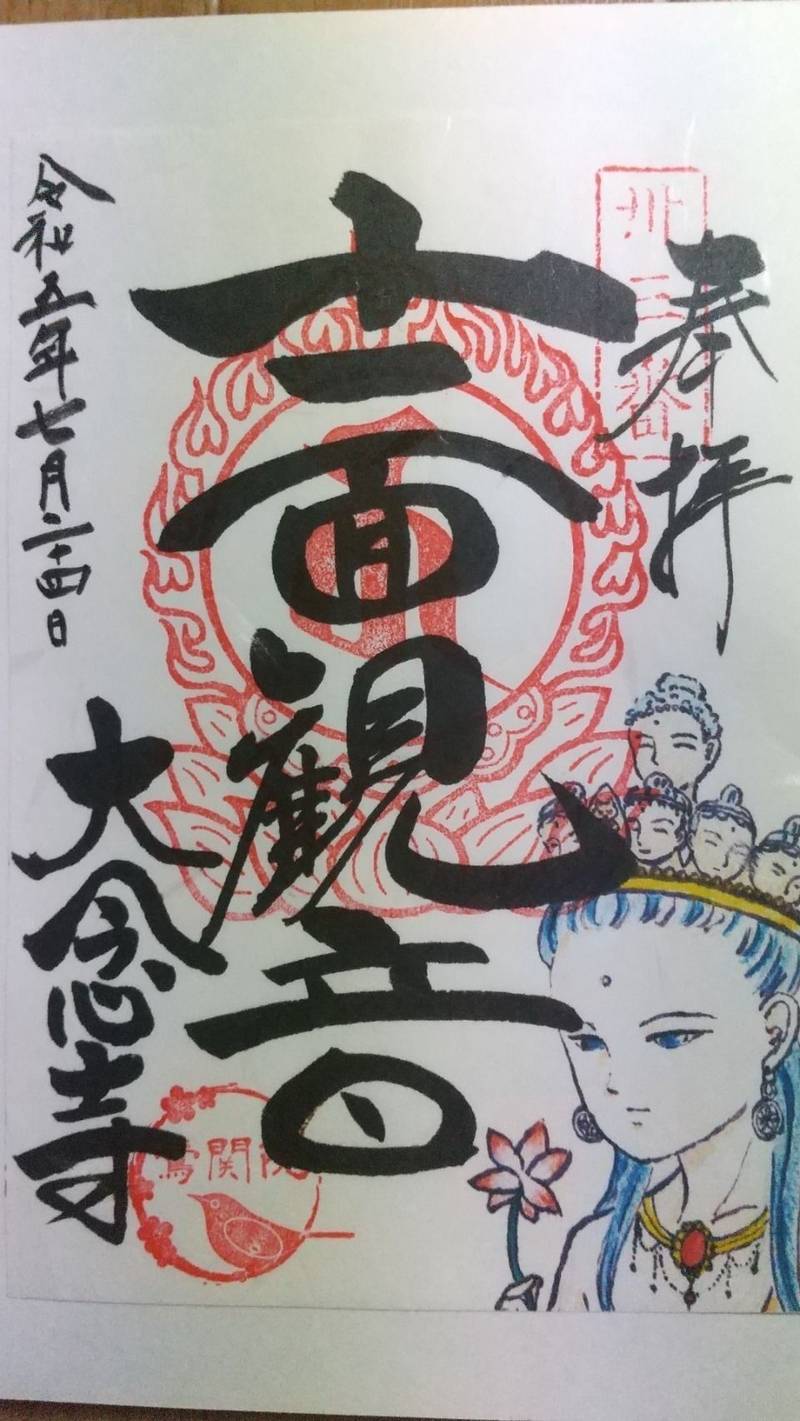 奉拝
卅三番
十一面観音
令和五年七月二十四日
大念寺
鶯関院